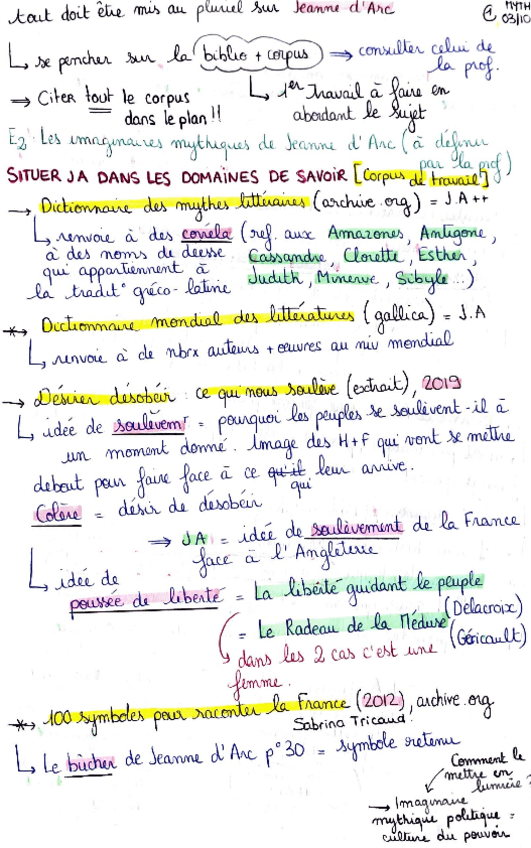 tout doit être mis au pluriel sur Jeanne d'Arc
① MYTH
03/10
↳ se pencher sur la biblio + corpus ⇒ consulter celui de
la prof.
⇒ Citer tout le corpus
dans le plan !!
↳ 1er Travail à faire en
abordant le sujet
E2: Les imaginaires mythiques de Jeanne d'Arc (à définir
par la prof)
SITUER JA DANS LES DOMAINES DE SAVOIR [Corpus de travail]
→ Dictionnaire des mythes littéraires (archive.org) = J.A ++
↳ renvoie à des (ref. aux Amazones, Antigone,
à des noms de déesse Cassandre, Clorette, Esther,
qui appartiennent à Judith, Minerve, Sibyle...)
la tradit° gréco-latine
*→ Dictionnaire mondial des littératures (gallica) = J.A
↳ renvoie à de nbrx auteurs + œuvres au niv mondial
→ Désirer désobéir : ce qui nous soulève (extrait), 2019
↳ idée de soulèvemt = pourquoi les peuples se soulèvent-il à
un moment donné. Image des H+F qui vont se mettre
debout pour faire face à ce qu'il leur arrive.
qui
Colère = désir de désobéir
⇒ JA = idée de soulèvement de la France
face à l'Angleterre
↳ idée de
poussée de liberté = La liberté guidant le peuple
(Delacroix)
= Le Radeau de la Méduse
(Géricault)
↳ dans les 2 cas c'est une
femme.
*→ 100 symboles pour raconter la France (2012), archive.org
Sabrina Tricaud
↳ Le bûcher de Jeanne d'Arc p°30 = symbole retenu
Comment le
mettre en
lumière ?
→ Imaginaire
mythique politique =
culture du pouvoir